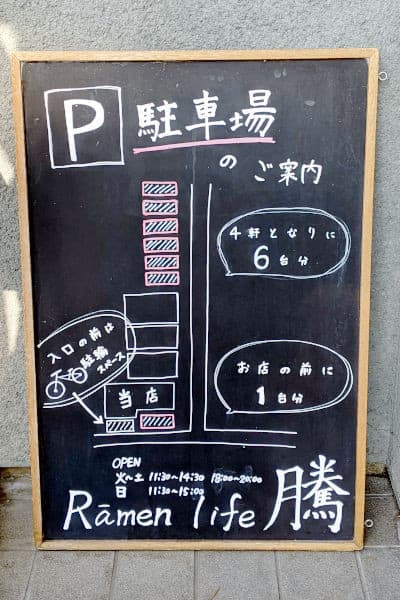 P 駐車場
のご案内
4軒となりに
6台分
入口の前は
駐輪
スペース
お店の前に
1台分
当店
OPEN
火〜土 11:30〜14:30 18:00〜20:00
日 11:30〜15:00
Rāmen life 騰